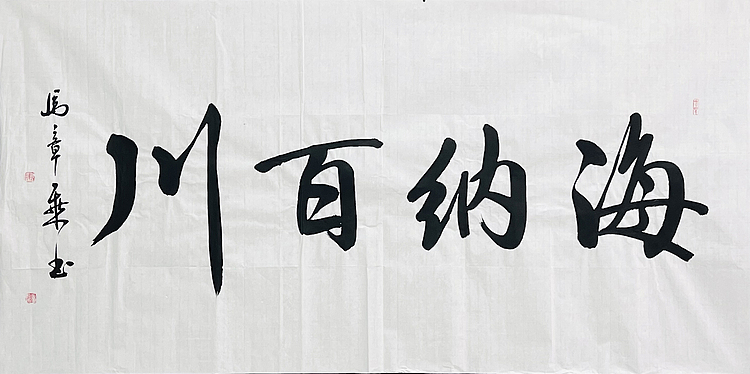 海纳百川
馬章乘书